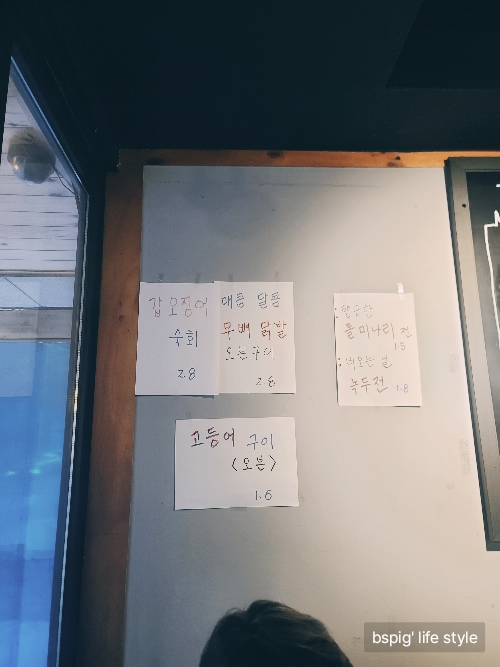 갑오징어
숙회
2.8
대품 달품
무뼈 닭발
오븐구이
2.8
: 향긋한
돌미나리 전
1.5
: 비오는 날
녹두전 1.8
고등어 구이
<오븐>
1.6
bspig' life style